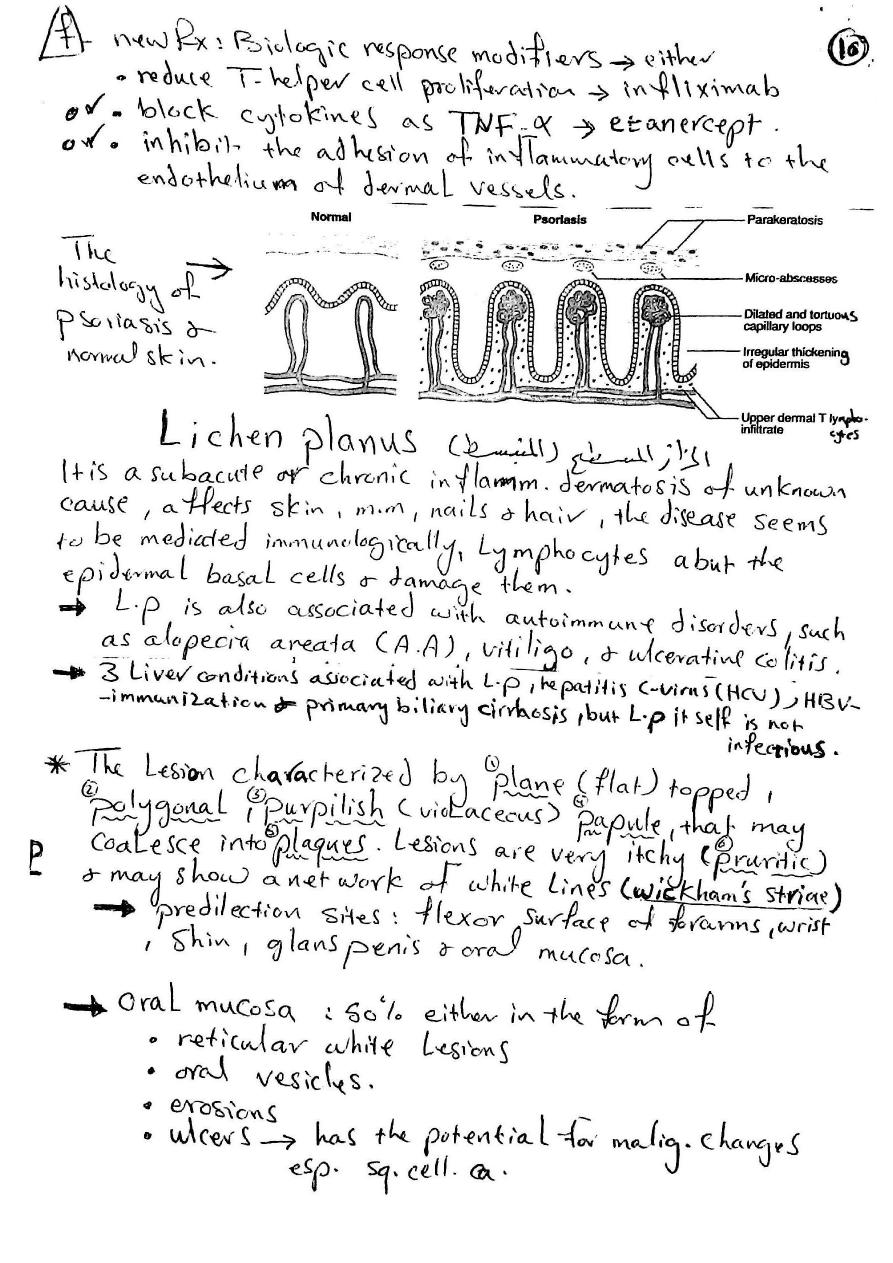 f new Rx: Biologic response modifiers → either
10
• reduce T-helper cell proliferation → infliximab
or • block cytokines as TNF-α → etanercept.
or • inhibit the adhesion of inflammatory cells to the
endothelium of dermal vessels.
Normal
Psoriasis
Parakeratosis
Micro-abscesses
Dilated and tortuous
capillary loops
Irregular thickening
of epidermis
Upper dermal T lympho-
infiltrate cytes
The →
histology of
psoriasis &
normal skin.
Lichen planus (المنبسط) الحزاز المسطح
It is a subacute or chronic inflamm. dermatosis of unknown
cause, affects skin, m.m, nails & hair, the disease seems
to be mediated immunologically, Lymphocytes abut the
epidermal basal cells & damage them.
→ L.p is also associated with autoimmune disorders, such
as alopecia areata (A.A), vitiligo, & ulcerative colitis.
→ 3 Liver conditions associated with L.p, hepatitis C-virus (HCV), HBV-
-immunization & primary biliary cirrhosis, but L.p it self is not
infectious.
* The Lesion characterized by (1) plane (flat) topped,
(2) polygonal, (3) purpilish (violaceous) (4) papule, that may
coalesce into (5) plaques. Lesions are very itchy (6) (pruritic)
P
& may show a net work of white Lines (wickham's striae)
→ predilection sites: flexor surface of forarms, wrist
, shin, glans penis & oral mucosa.
→ oral mucosa : 50% either in the form of
• reticular white Lesions
• oral vesicles.
• erosions
• ulcers → has the potential for malig. changes
esp. sq. cell. ca.